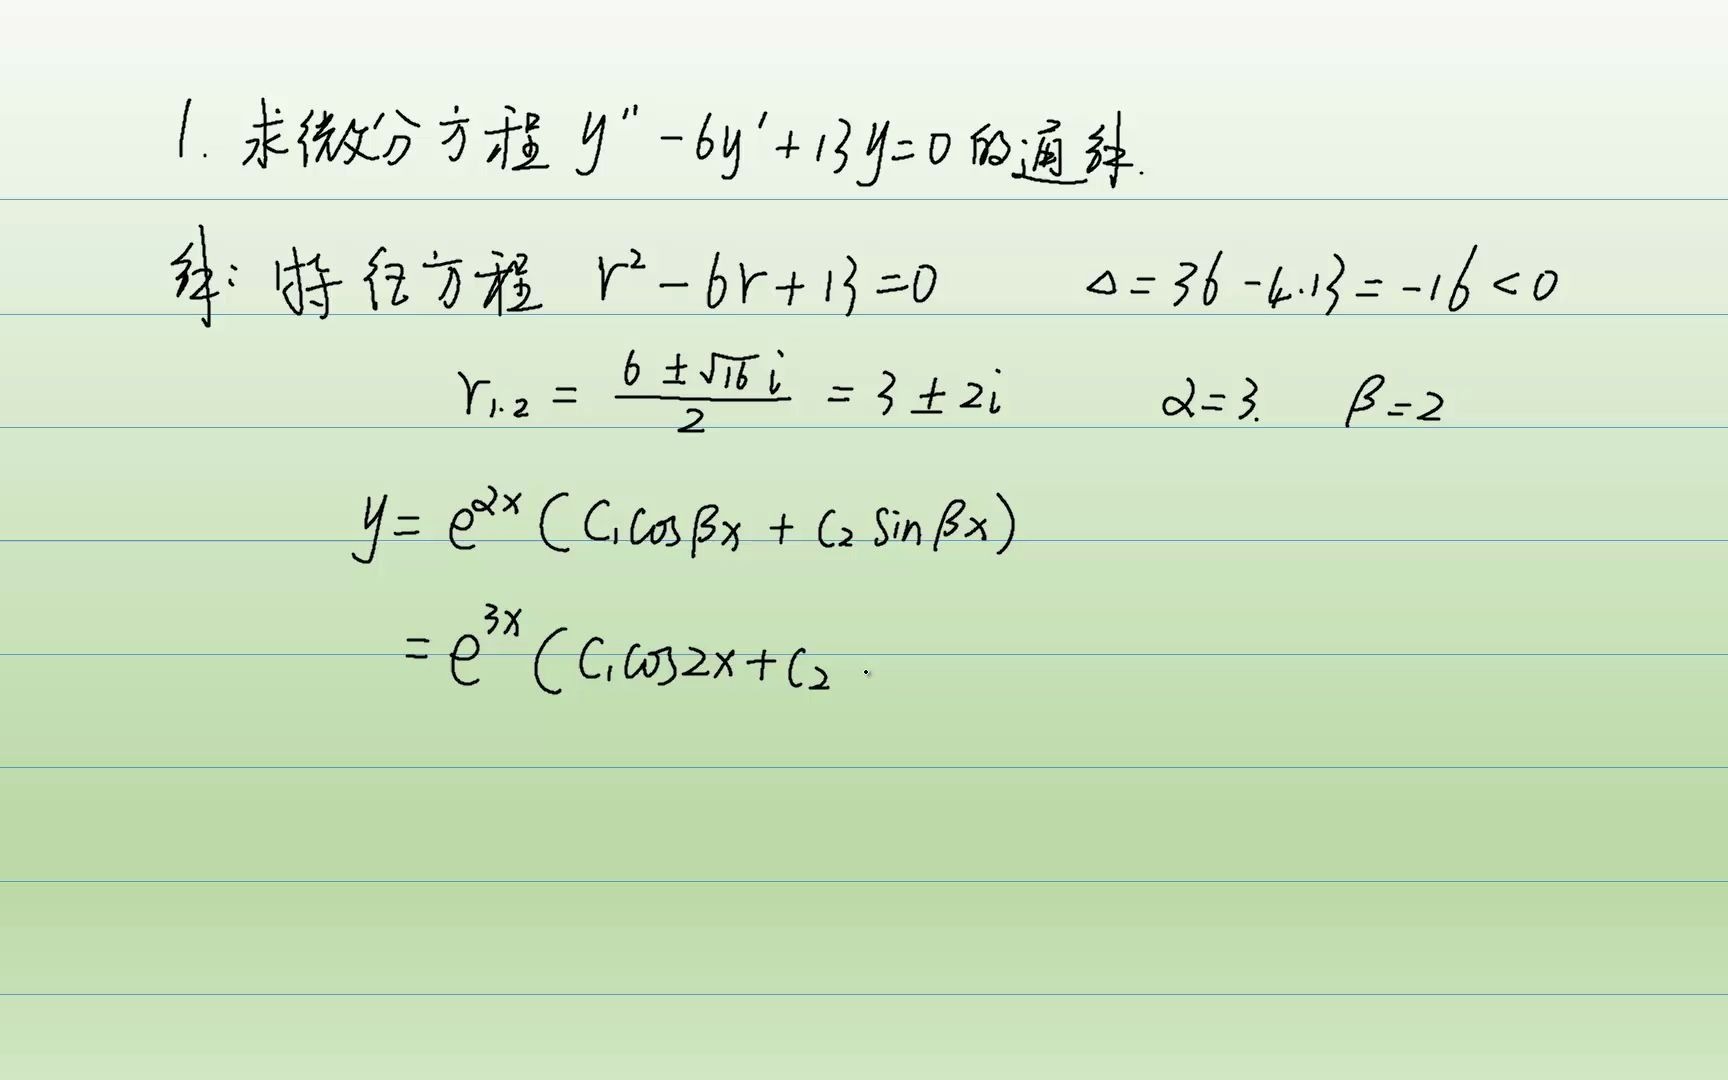 1. 求微分方程 y″ - 6y′ + 13y = 0 的通解.
解: 特征方程 r² - 6r + 13 = 0 Δ = 36 - 4·13 = -16 < 0
r₁.₂ = (6 ± √16 i)/2 = 3 ± 2i α = 3. β = 2
y = e^{αx} ( C₁ cos βx + C₂ sin βx )
= e^{3x} ( C₁ cos 2x + C₂